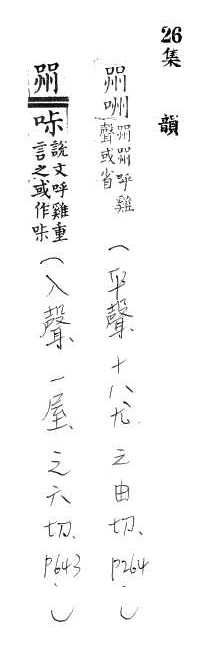 26集 韻
喌
喌喌呼雞
聲或省
（平聲十八尤之由切、p264.）
喌
說文呼雞重
言之或作咮
（入聲、一屋、之六切、p643.）